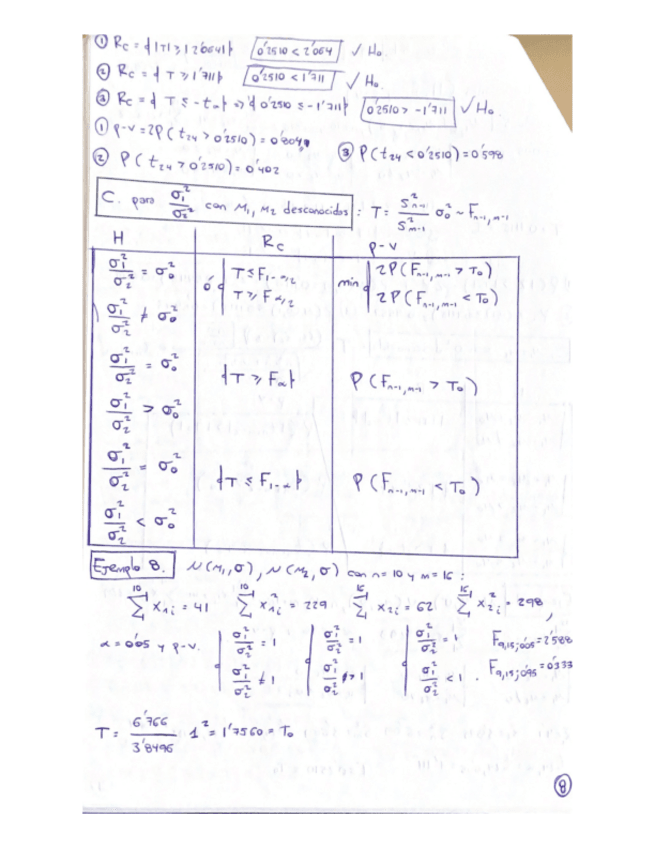 ① Rc = {|T| ≥ 2'0641} 0'2510 < 2'064 ✓ Ho
② Rc = { T ≥ 1'711} 0'2510 < 1'711 ✓ Ho
③ Rc = { T ≤ -tα} => {0'2510 ≤ -1'711} 0'2510 > -1'711 ✓ Ho
① p-v = 2P(t₂₄ > 0'2510) = 0'804
② P(t₂₄ > 0'2510) = 0'402 ③ P(t₂₄ < 0'2510) = 0'598
C. para σ₁²/σ₂² con M₁, M₂ desconocidos : T = S²ₙ₋₁/S²ₘ₋₁ σ₀² ~ Fₙ₋₁,ₘ₋₁
H Rc p-v
σ₁²/σ₂² = σ₀² ó { T ≤ F₁₋α/₂ min { 2P(Fₙ₋₁,ₘ₋₁ > T₀)
σ₁²/σ₂² ≠ σ₀² T ≥ Fα/₂ 2P(Fₙ₋₁,ₘ₋₁ < T₀)
σ₁²/σ₂² = σ₀² {T ≥ Fα} P(Fₙ₋₁,ₘ₋₁ > T₀)
σ₁²/σ₂² > σ₀²
σ₁²/σ₂² = σ₀² {T ≤ F₁₋α} P(Fₙ₋₁,ₘ₋₁ < T₀)
σ₁²/σ₂² < σ₀²
Ejemplo 8. N(M₁,σ), N(M₂,σ) con n=10 y m=16 :
10 Σ x₁ᵢ = 41 10 Σ x₁ᵢ² = 229 16 Σ x₂ᵢ = 62 16 Σ x₂ᵢ² = 298,
α = 0'05 y p-v. { σ₁²/σ₂² = 1 { σ₁²/σ₂² = 1 { σ₁²/σ₂² = 1 F₉,₁₅;₀'₀₅ = 2'588
σ₁²/σ₂² ≠ 1 σ₁²/σ₂² > 1 σ₁²/σ₂² < 1 . F₉,₁₅;₀'₉₅ = 0'333
T = 6'766/3'8496 1² = 1'7560 = T₀
⑧